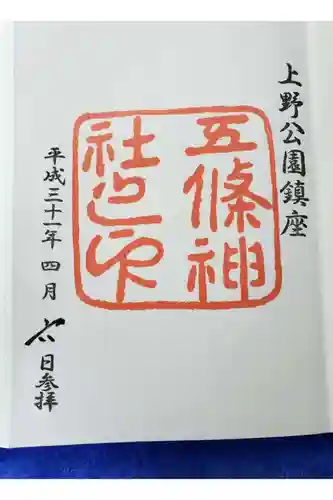 上野公園鎮座
五條神
社之印
平成三十一年四月六日参拝